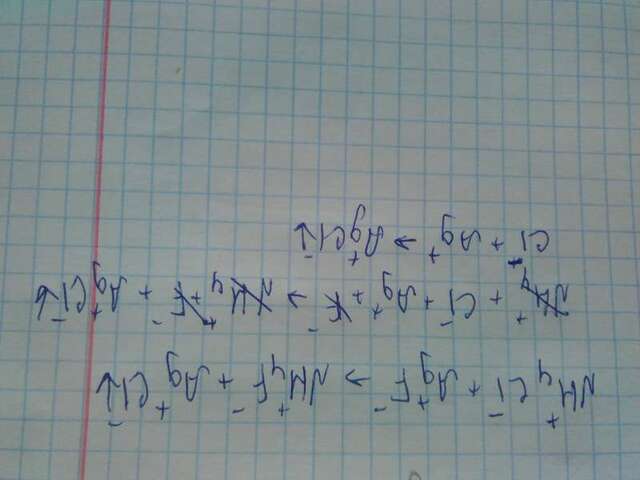 NH₄⁺Cl⁻ + Ag⁺F⁻ → NH₄⁺F⁻ + Ag⁺Cl⁻↓
NH₄⁺ + Cl⁻ + Ag⁺ + F⁻ → NH₄⁺ + F⁻ + Ag⁺Cl⁻↓
Cl⁻ + Ag⁺ → Ag⁺Cl⁻↓